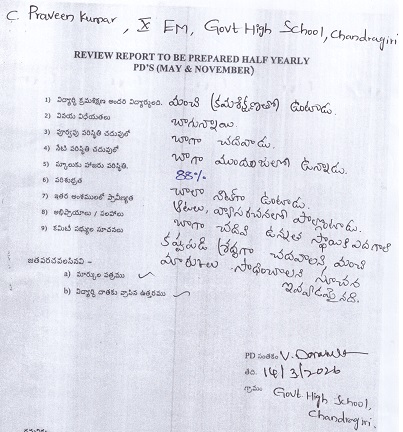 C. Praveen Kumar, X EM, Govt High School, Chandragiri
REVIEW REPORT TO BE PREPARED HALF YEARLY
PD'S (MAY & NOVEMBER)
1) విద్యార్థి క్రమశిక్షణ అందరి విద్యార్థులంది. మంచి క్రమశిక్షణతో ఉంటాడు.
2) వినయ విధేయతలు బాగున్నాయి.
3) పూర్వపు పరిస్థితి చదువులో బాగా చదివాడు.
4) నేటి పరిస్థితి చదువులో బాగా ముందంజలో ఉన్నాడు.
5) స్కూలుకు హాజరు పరిస్థితి. 88%
6) పరిశుభ్రత చాలా నీట్‌గా ఉంటాడు.
7) ఇతర అంశములలో ప్రావీణ్యత ఆటలు, వ్యాసరచనలలో పాల్గొంటాడు.
8) అభిప్రాయాలు / సలహాలు బాగా చదివి ఉన్నత స్థాయికి ఎదగాలి
9) కమిటి సభ్యుల సూచనలు శ్రద్ధగా చదువాలని మంచి
మార్కులు సాధించాలని సూచన
ఇవ్వడమైనది.
జతపరచవలసినవి -
a) మార్కుల పత్రము ✓
b) విద్యార్థి దాతకు వ్రాసిన ఉత్తరము ✓
PD సంతకం V.
తేది. 14/3/2026
గ్రామం Govt. High School,
Chandragiri.